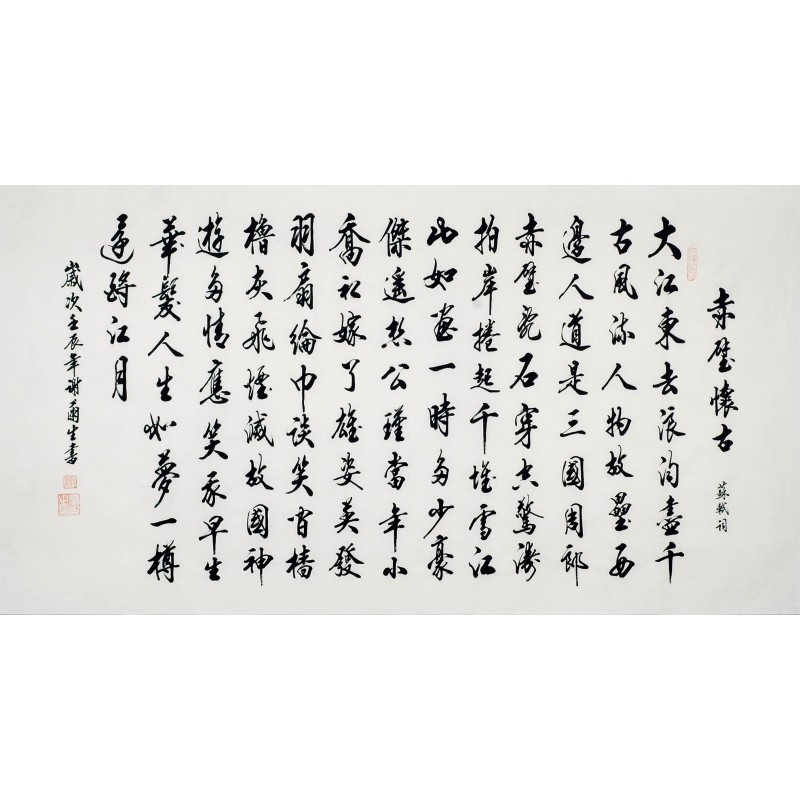 赤壁懷古
蘇軾詞
大江東去浪淘盡千
古風流人物故壘西
邊人道是三國周郎
赤壁亂石穿空驚濤
拍岸捲起千堆雪江
山如畫一時多少豪
傑遙想公瑾當年小
喬初嫁了雄姿英發
羽扇綸巾談笑間檣
櫓灰飛煙滅故國神
遊多情應笑我早生
華髮人生如夢一樽
還酹江月
歲次壬辰年謝生書